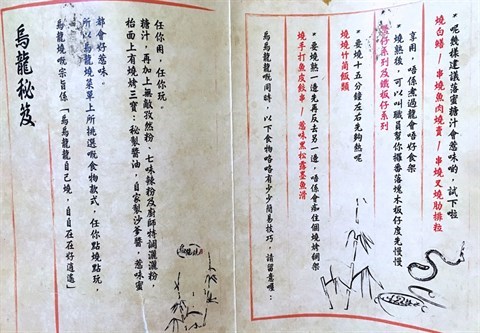 烏龍秘笈
烏龍燒嘅宗旨係「烏烏龍龍自己燒,自自在在好逍遙」
所以烏龍燒菜單上所挑選嘅食物款式,任你點燒點玩,
都會好惹味。
抬面上有燒烤三寶:秘製醬油,自家製沙爹醬,惹味蜜
糖汁,再加上無敵孜然粉、七味辣粉及廚師特調灑灑粉,
任你用,任你玩。
烏烏龍龍嘅同時,以下食物咯咯有少少簡易技巧,請留意喔:
燒手打魚皮餃串/惹味黑松露墨魚滑
*要燒熟一邊先再反去另一邊,唔係會痴住個燒烤網架
燒燒竹筒飯類
*要燒十五分鐘左右先夠熱呢
仔系列及鐵板仔系列
*燒熟後,可以叫職員幫你攞番落塊木板仔度先慢慢
享用,唔係煮過龍會唔好食架
燒白鱔/串燒魚肉燒賣/串燒叉燒肋排粒
*呢幾樣建議落蜜糖汁會惹味啲,試下啦